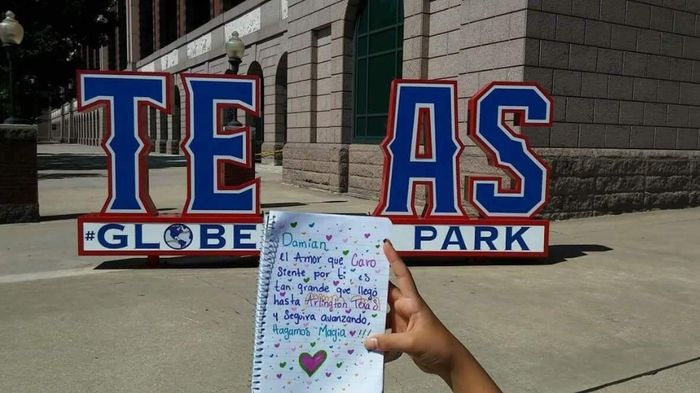 TE AS
#GLOBE PARK
Damian
el Amor que Caro
siente por ti, es
tan grande que llegó
hasta Arlington Texas
y seguira avanzando,
Hagamos Magia !!!